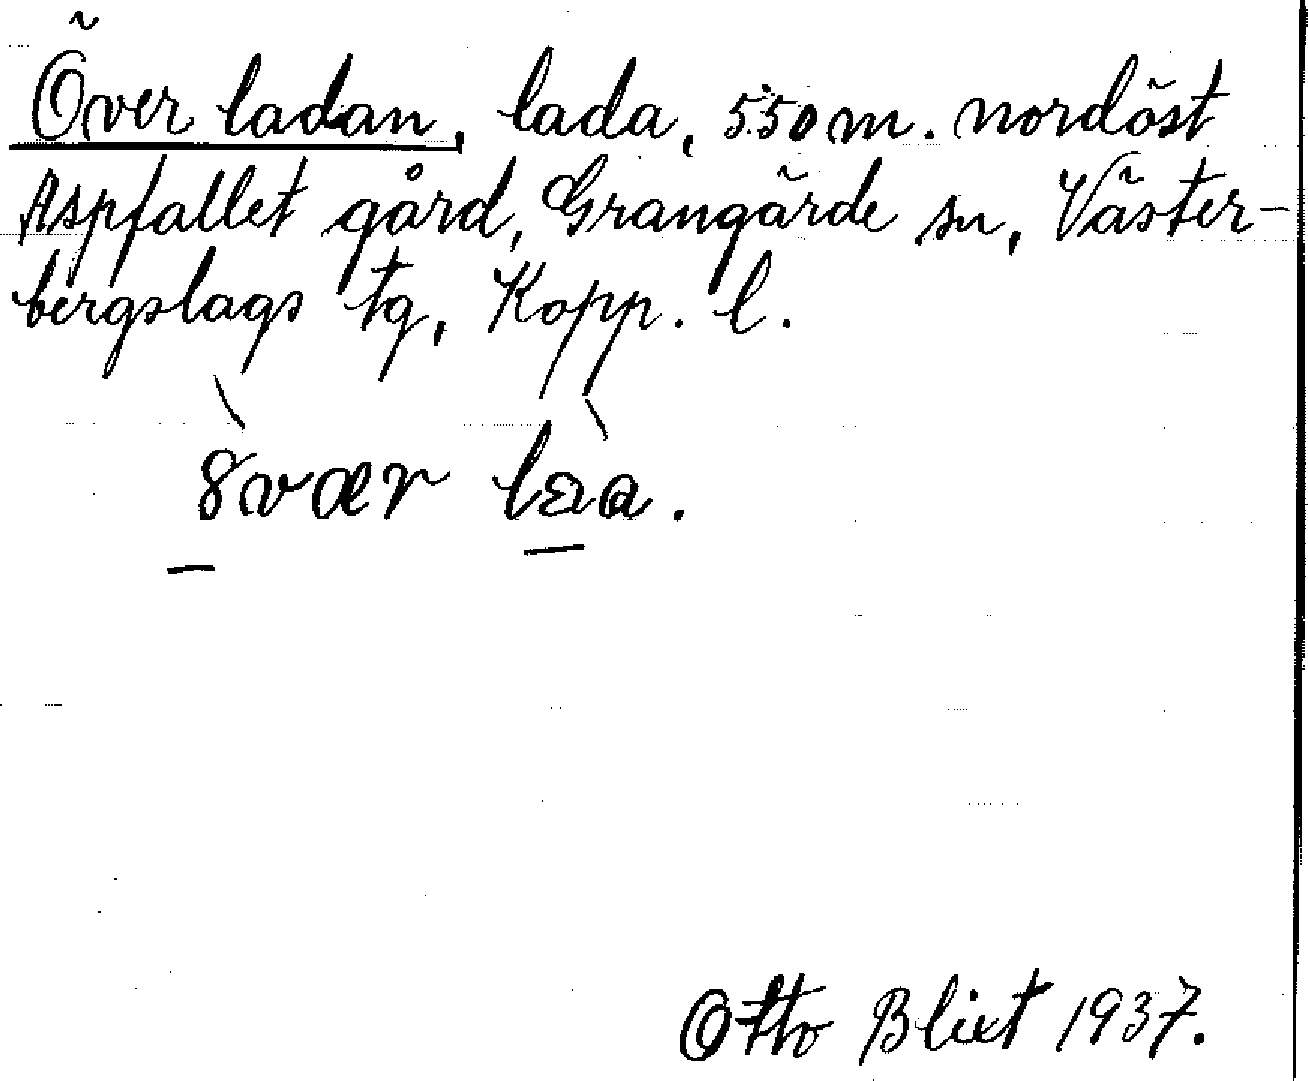 Över ladan, lada, 550 m. nordöst
Aspfallet gård, Grangärde sn, Väster-
bergslags tg, Kopp. l.
Otto Blixt 1937.